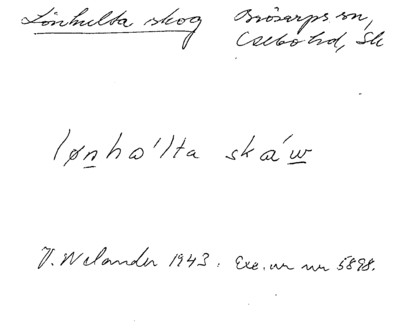 Lönhulta skog Brösarps sn,
Albo hd, Sk
lønha'lta skáw
V. Welander 1943. Exc. ur nr 5898.